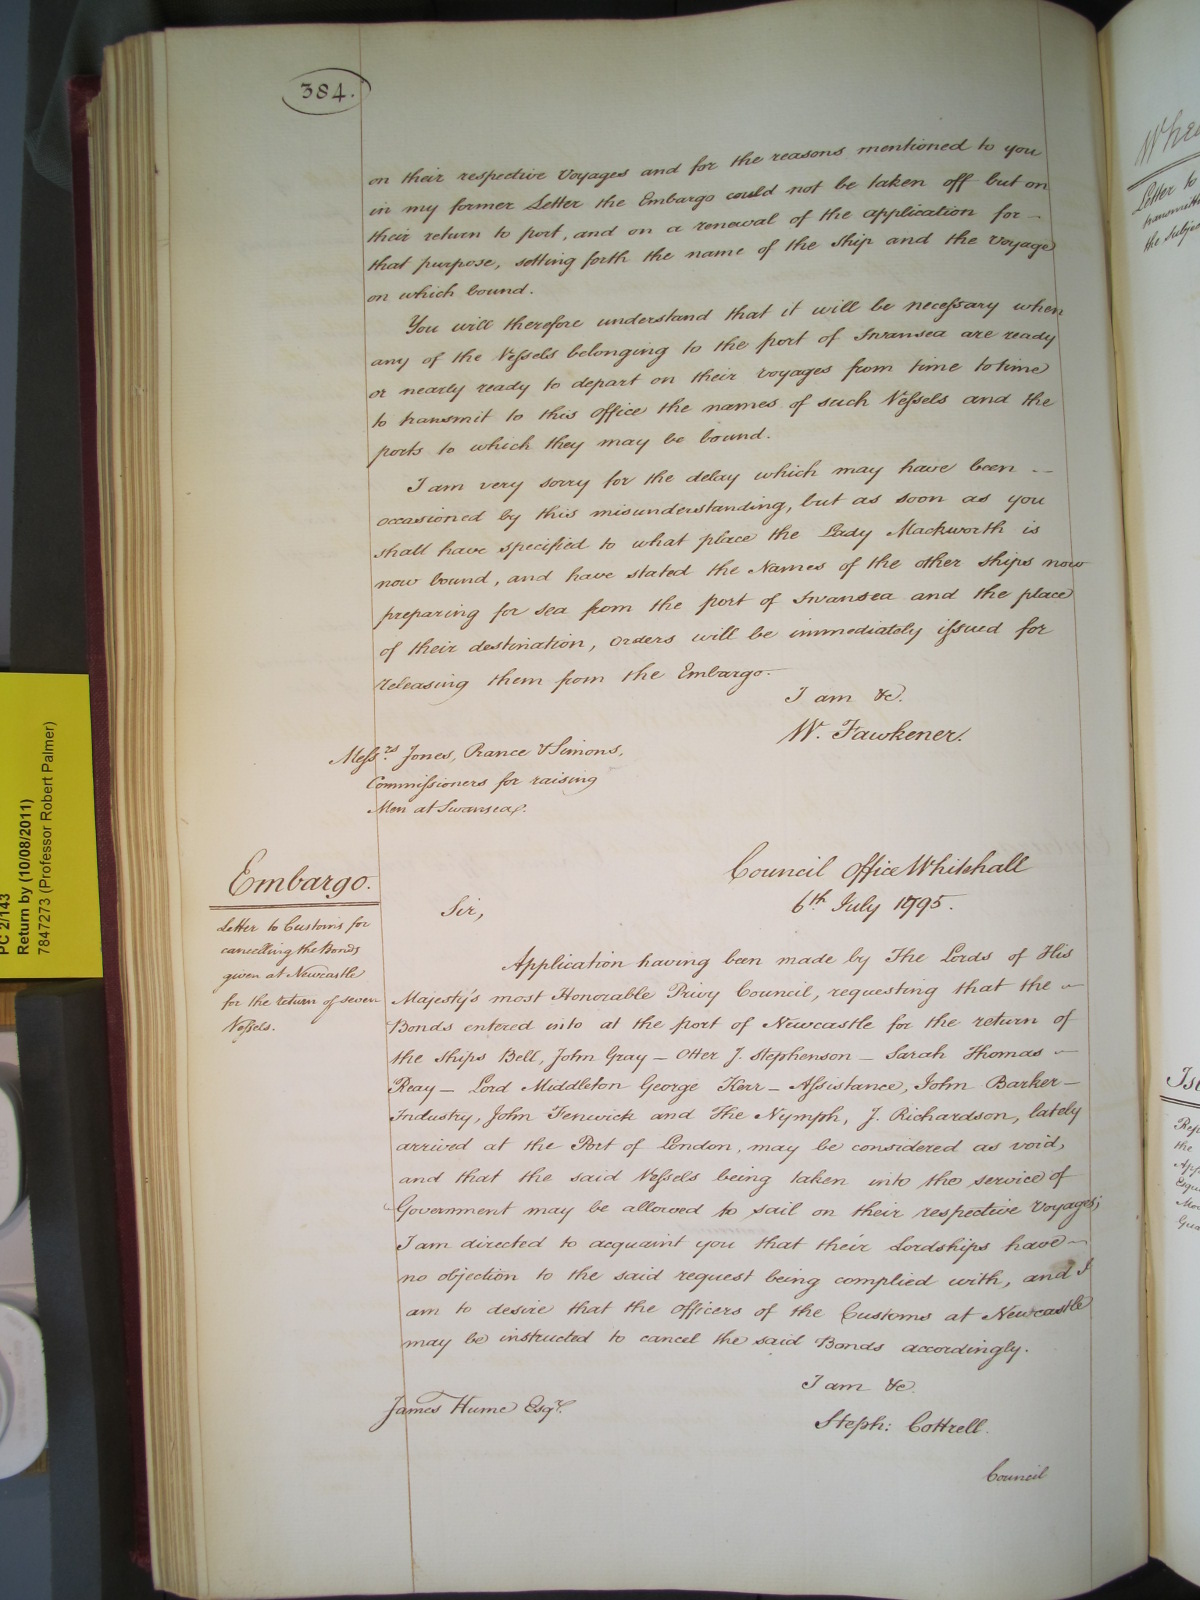 384.
on their respective Voyages and for the reasons mentioned to you
in my former Letter the Embargo could not be taken off but on
their return to port, and on a renewal of the application for -
that purpose, setting forth the name of the Ship and the Voyage
on which bound.
You will therefore understand that it will be necessary when
any of the Vessels belonging to the port of Swansea are ready
or nearly ready to depart on their voyages from time to time
to transmit to this office the names of such Vessels and the
ports to which they may be bound.
I am very sorry for the delay which may have been --
occasioned by this misunderstanding, but as soon as you
shall have specified to what place the Lady Mackworth is
now bound, and have stated the Names of the other ships now
preparing for sea from the port of Swansea and the place
of their destination, Orders will be immediately issued for
releasing them from the Embargo.
I am &c.
W. Fawkener.
Messrs. Jones, Prance & Simons,
Commissioners for raising
Men at Swansea.
Embargo.
Letter to Customs for
cancelling the Bonds
given at Newcastle
for the return of seven
Vessels.
Council Office Whitehall
6th July 1795.
Sir,
Application having been made by The Lords of His
Majesty's most Honorable Privy Council, requesting that the -
Bonds entered into at the port of Newcastle for the return of
the ships Bell, John Gray - Otter J. Stephenson - Sarah Thomas -
Reay - Lord Middleton George Kerr - Assistance, John Barker -
Industry, John Fenwick and The Nymph, J. Richardson, lately
arrived at the Port of London, may be considered as void,
and that the said Vessels being taken into the service of
Government may be allowed to sail on their respective Voyages;
I am directed to acquaint you that their Lordships have -
no objection to the said request being complied with, and I
am to desire that the Officers of the Customs at Newcastle
may be instructed to cancel the said Bonds accordingly.
I am &c.
Steph: Cottrell.
James Hume Esqr.
Council
PC 2/143
Return by (10/08/2011)
7847273 (Professor Robert Palmer)
Letter to
the